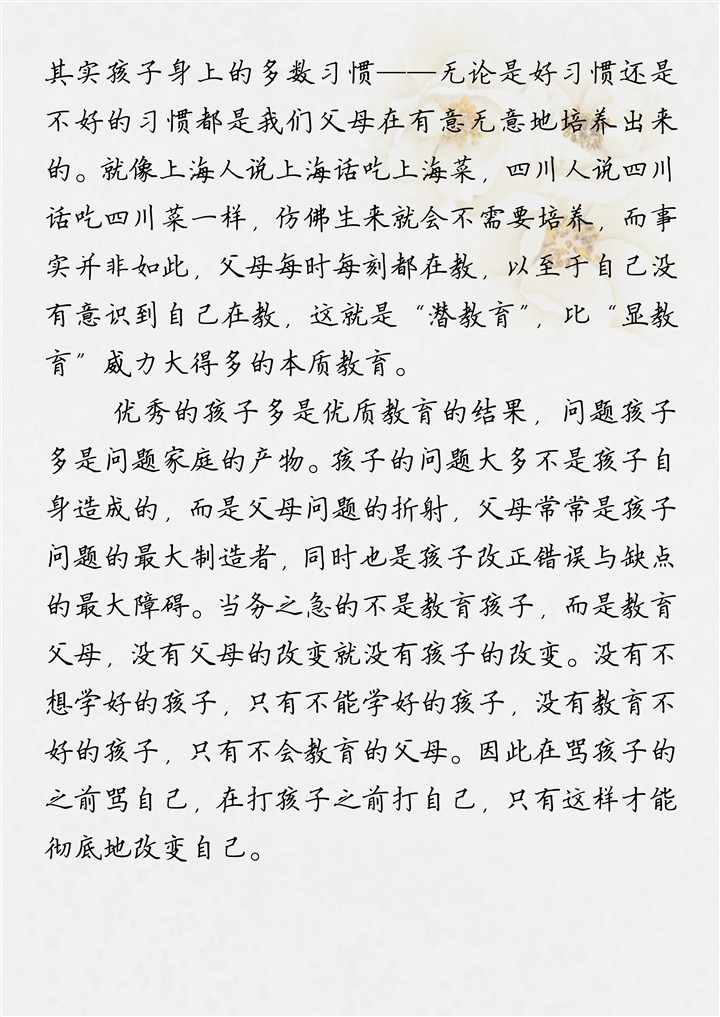 其实孩子身上的多数习惯——无论是好习惯还是
不好的习惯都是我们父母在有意无意地培养出来
的。就像上海人说上海话吃上海菜，四川人说四川
话吃四川菜一样，仿佛生来就会不需要培养，而事
实并非如此，父母每时每刻都在教，以至于自己没
有意识到自己在教，这就是“潜教育”，比“显教
育”威力大得多的本质教育。
优秀的孩子多是优质教育的结果，问题孩子
多是问题家庭的产物。孩子的问题大多不是孩子自
身造成的，而是父母问题的折射，父母常常是孩子
问题的最大制造者，同时也是孩子改正错误与缺点
的最大障碍。当务之急的不是教育孩子，而是教育
父母，没有父母的改变就没有孩子的改变。没有不
想学好的孩子，只有不能学好的孩子，没有教育不
好的孩子，只有不会教育的父母。因此在骂孩子的
之前骂自己，在打孩子之前打自己，只有这样才能
彻底地改变自己。